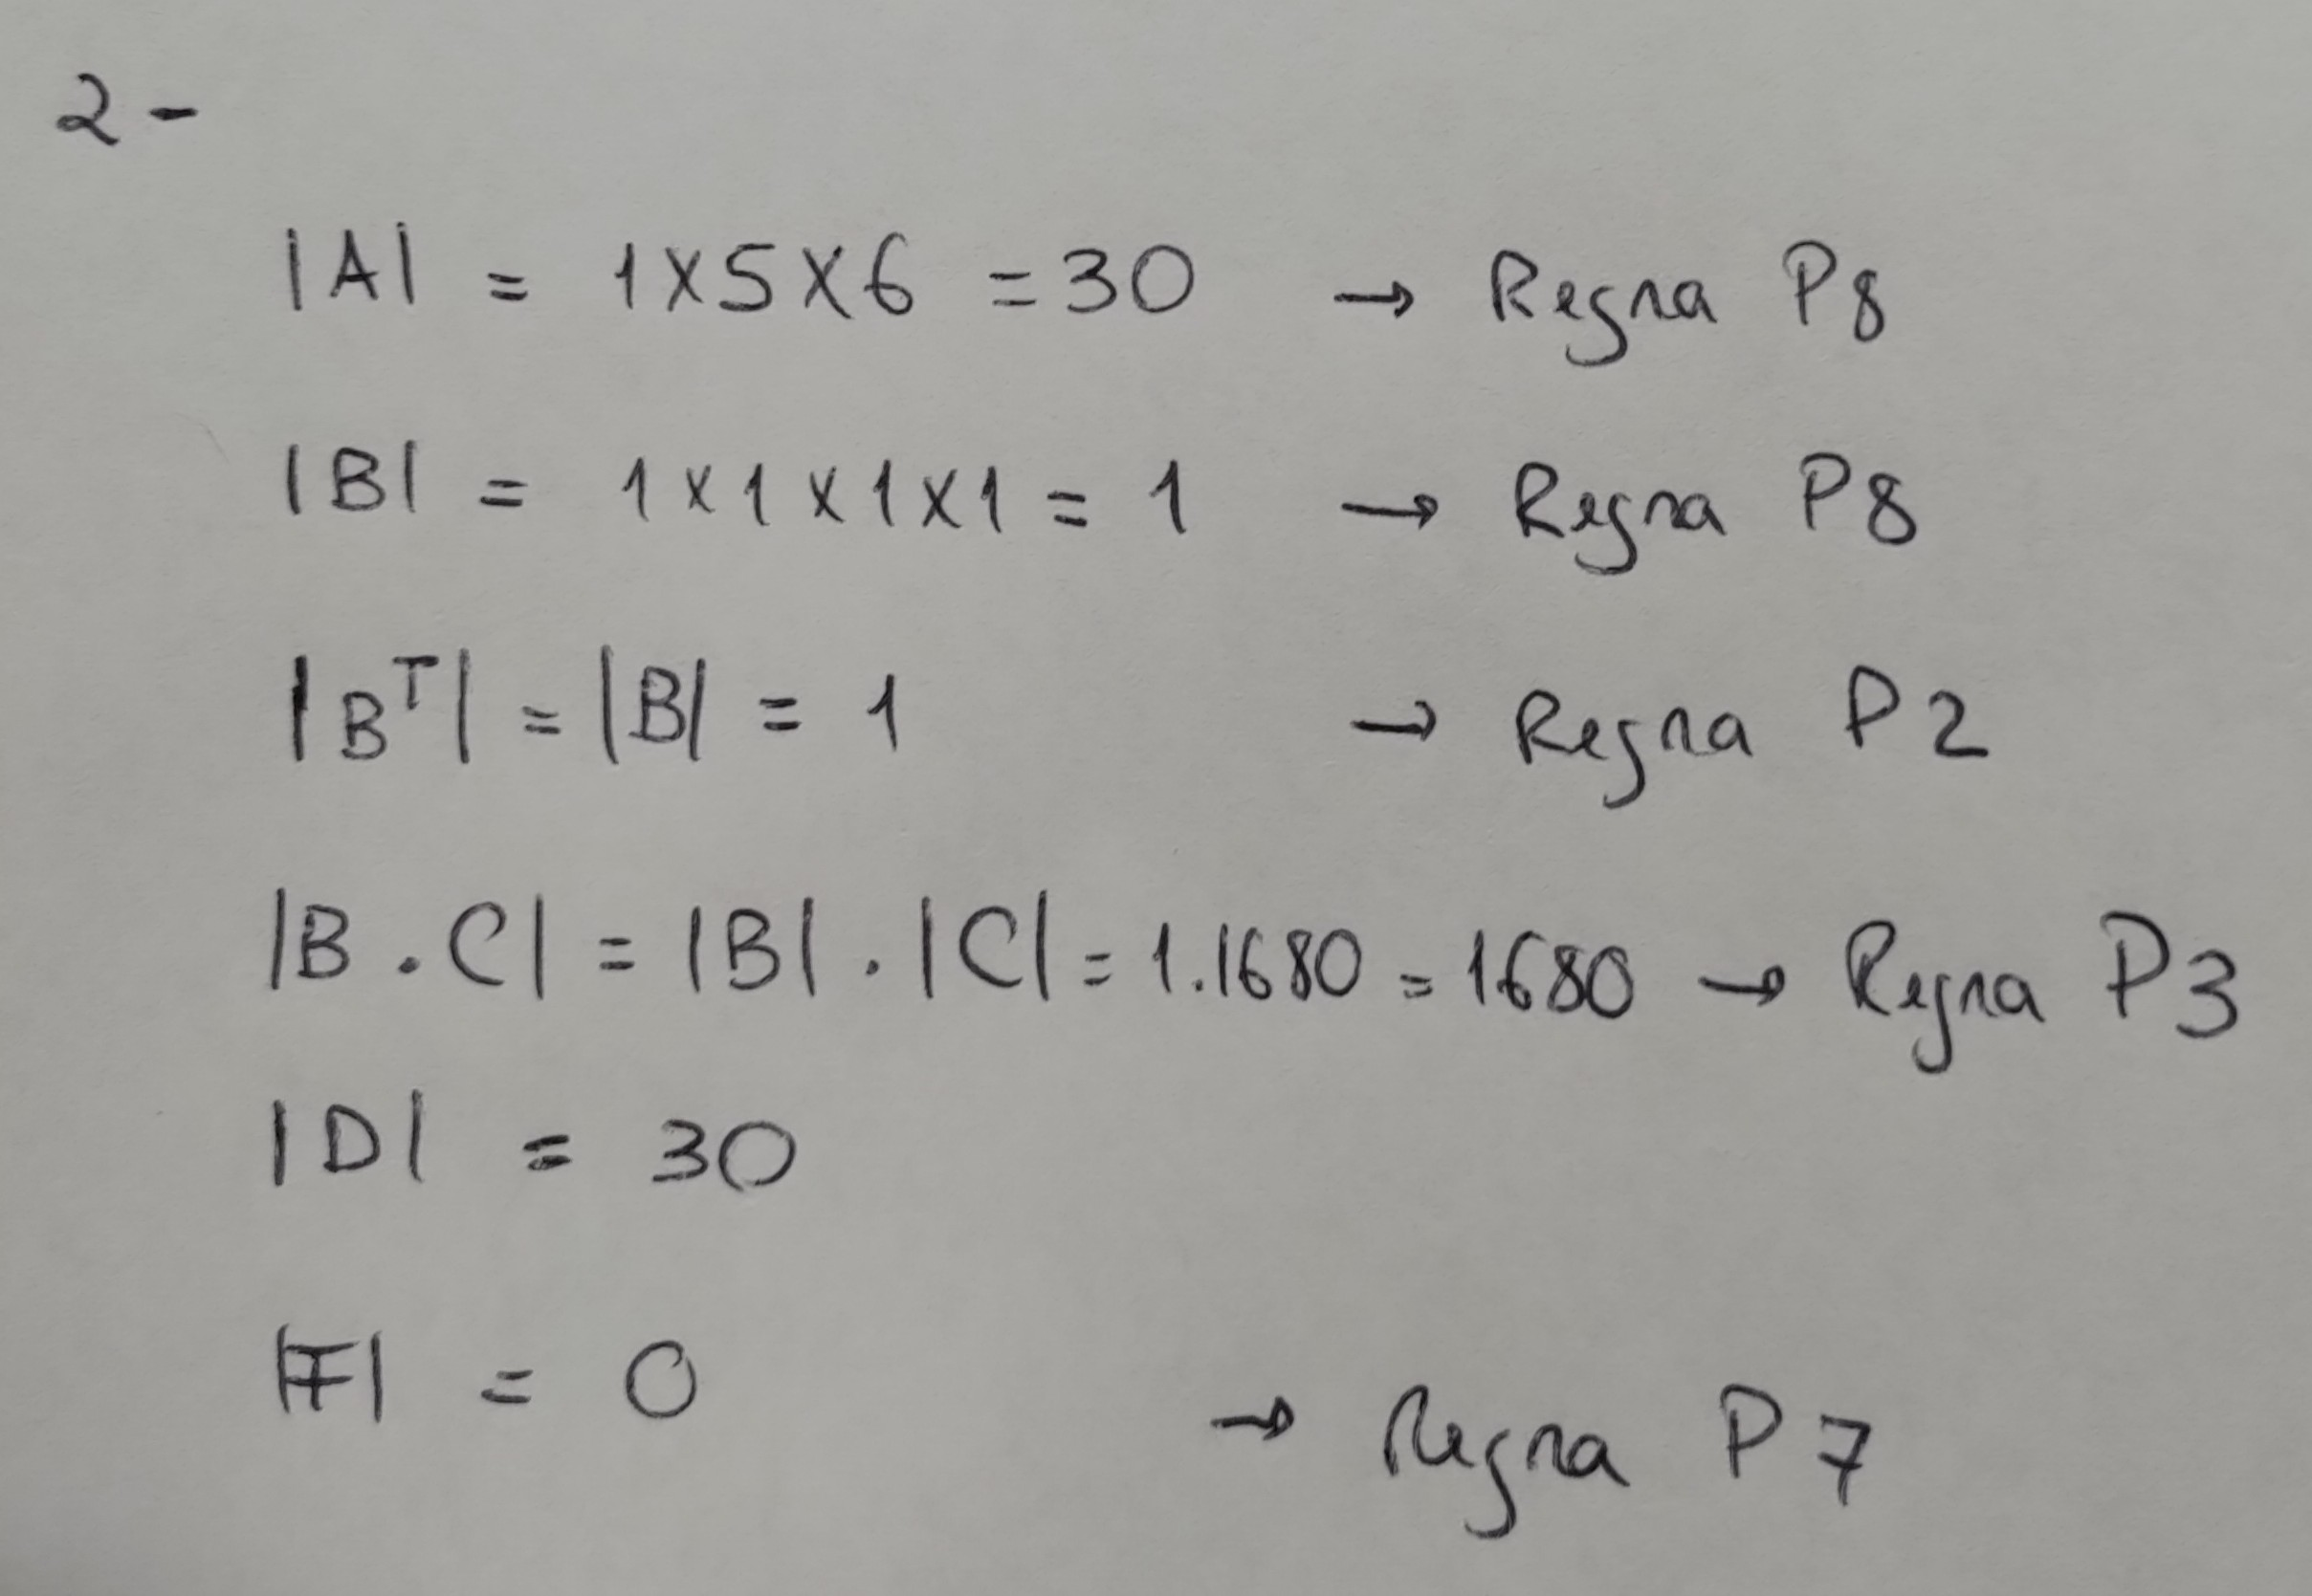 2-
|A| = 1x5x6 = 30 → Regra P8
|B| = 1x1x1x1 = 1 → Regra P8
|Bᵀ| = |B| = 1 → Regra P2
|B . C| = |B| . |C| = 1.1680 = 1680 → Regra P3
|D| = 30
|F| = 0 → Regra P7